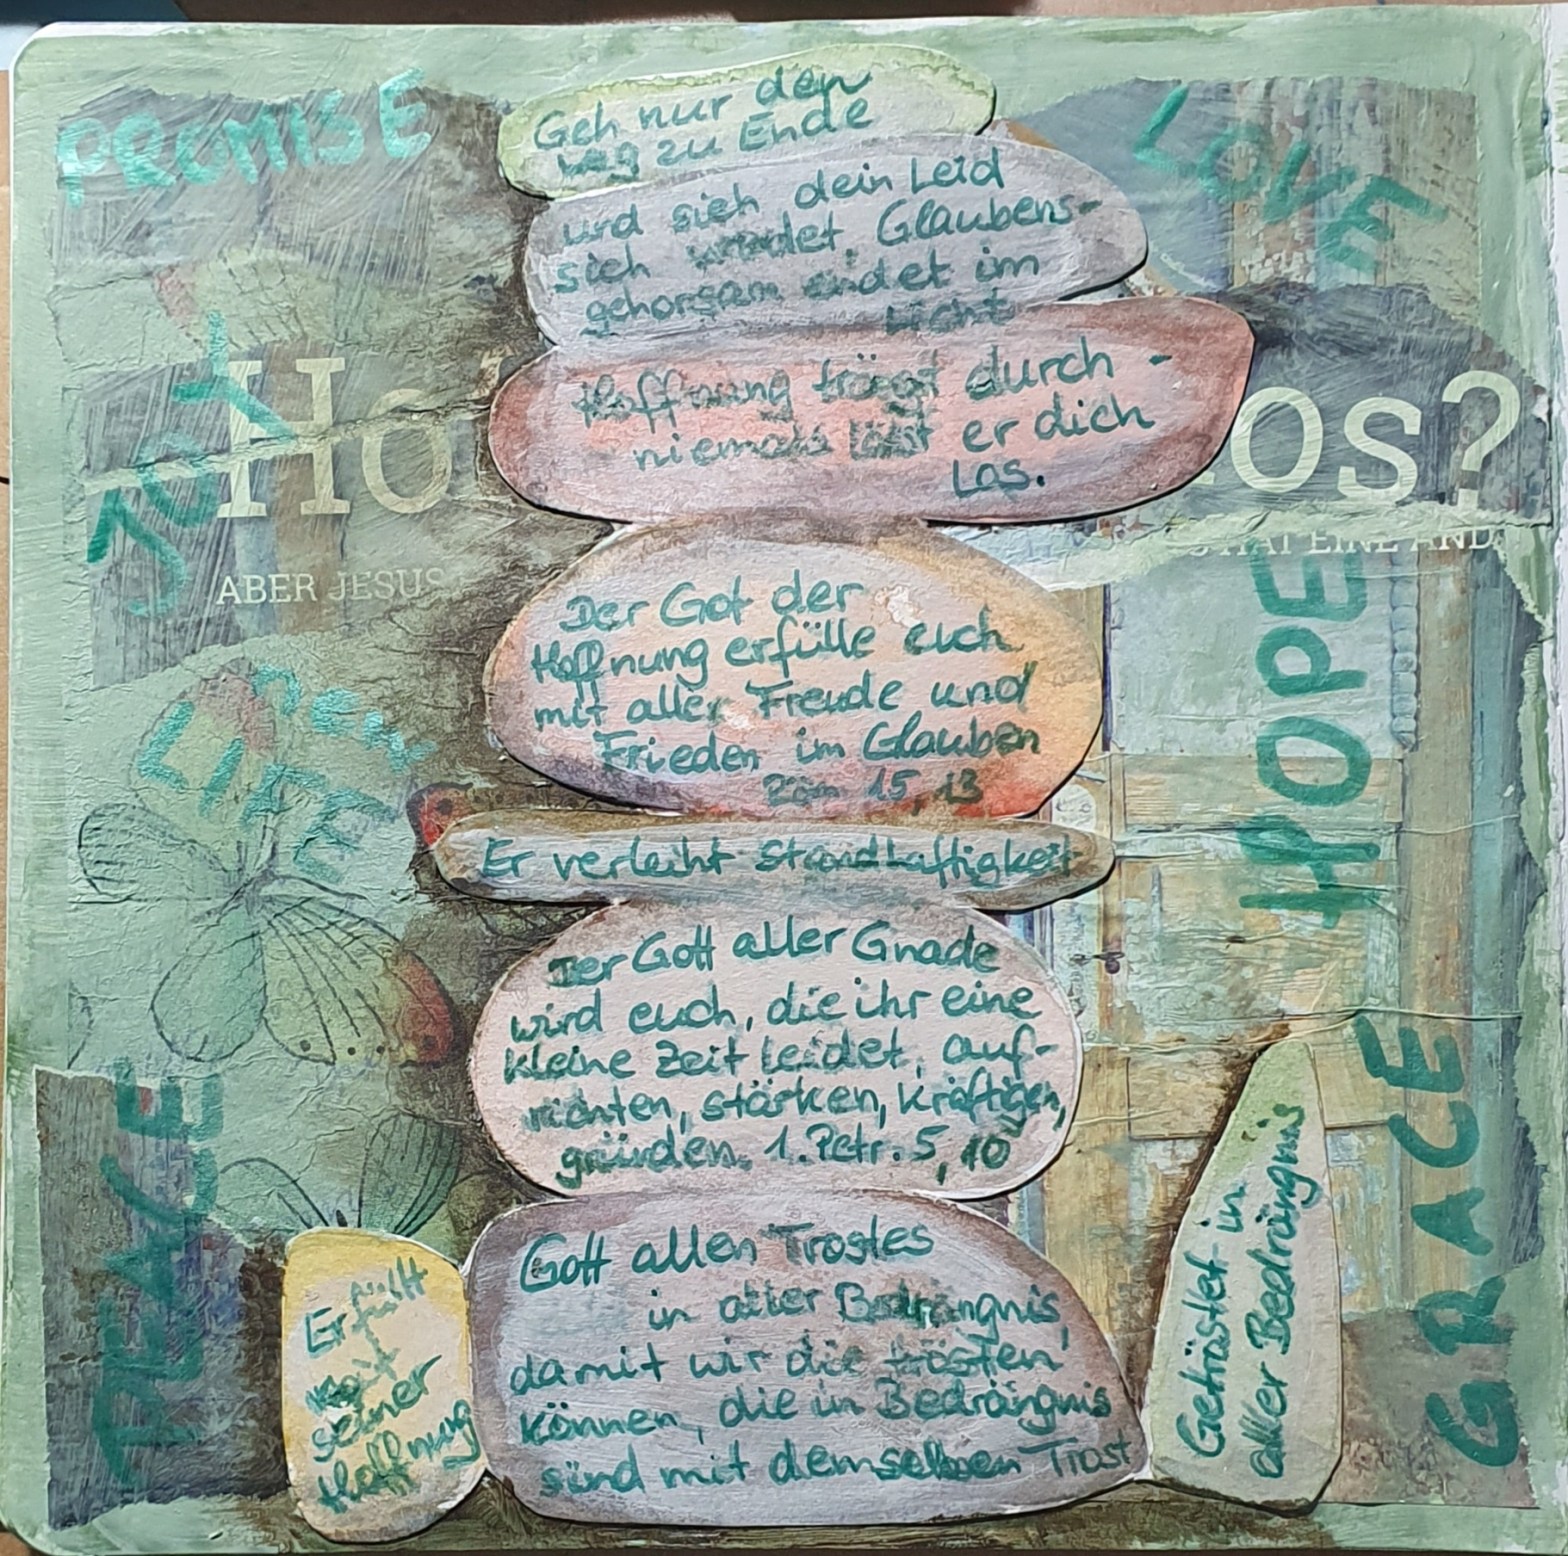 PROMISE
LOVE
Geh nur den
weg zu Ende
wird sich dein Leid
sich wendet. Glaubens-
gehorsam endet im
Licht
JOY
Ho
OS?
Hoffnung trägt durch -
niemals lässt er dich
Los.
ABER JESUS
Der Got der
Hoffnung erfülle euch
mit aller Freude und
Frieden im Glauben
Röm 15, 13
HOPE
Er verleiht Standhaftigkeit
Der Gott aller Gnade
wird euch, die ihr eine
kleine Zeit leidet, auf-
richten, stärken, kräftigen,
gründen. 1. Petr. 5, 10
PEACE
GRACE
Erfüllt
mit
seiner
Hoffnung
Gott allen Trostes
in aller Bedrängnis,
damit wir die trösten
können, die in Bedrängnis
sind mit demselben Trost
Getröstet in
aller Bedrängnis